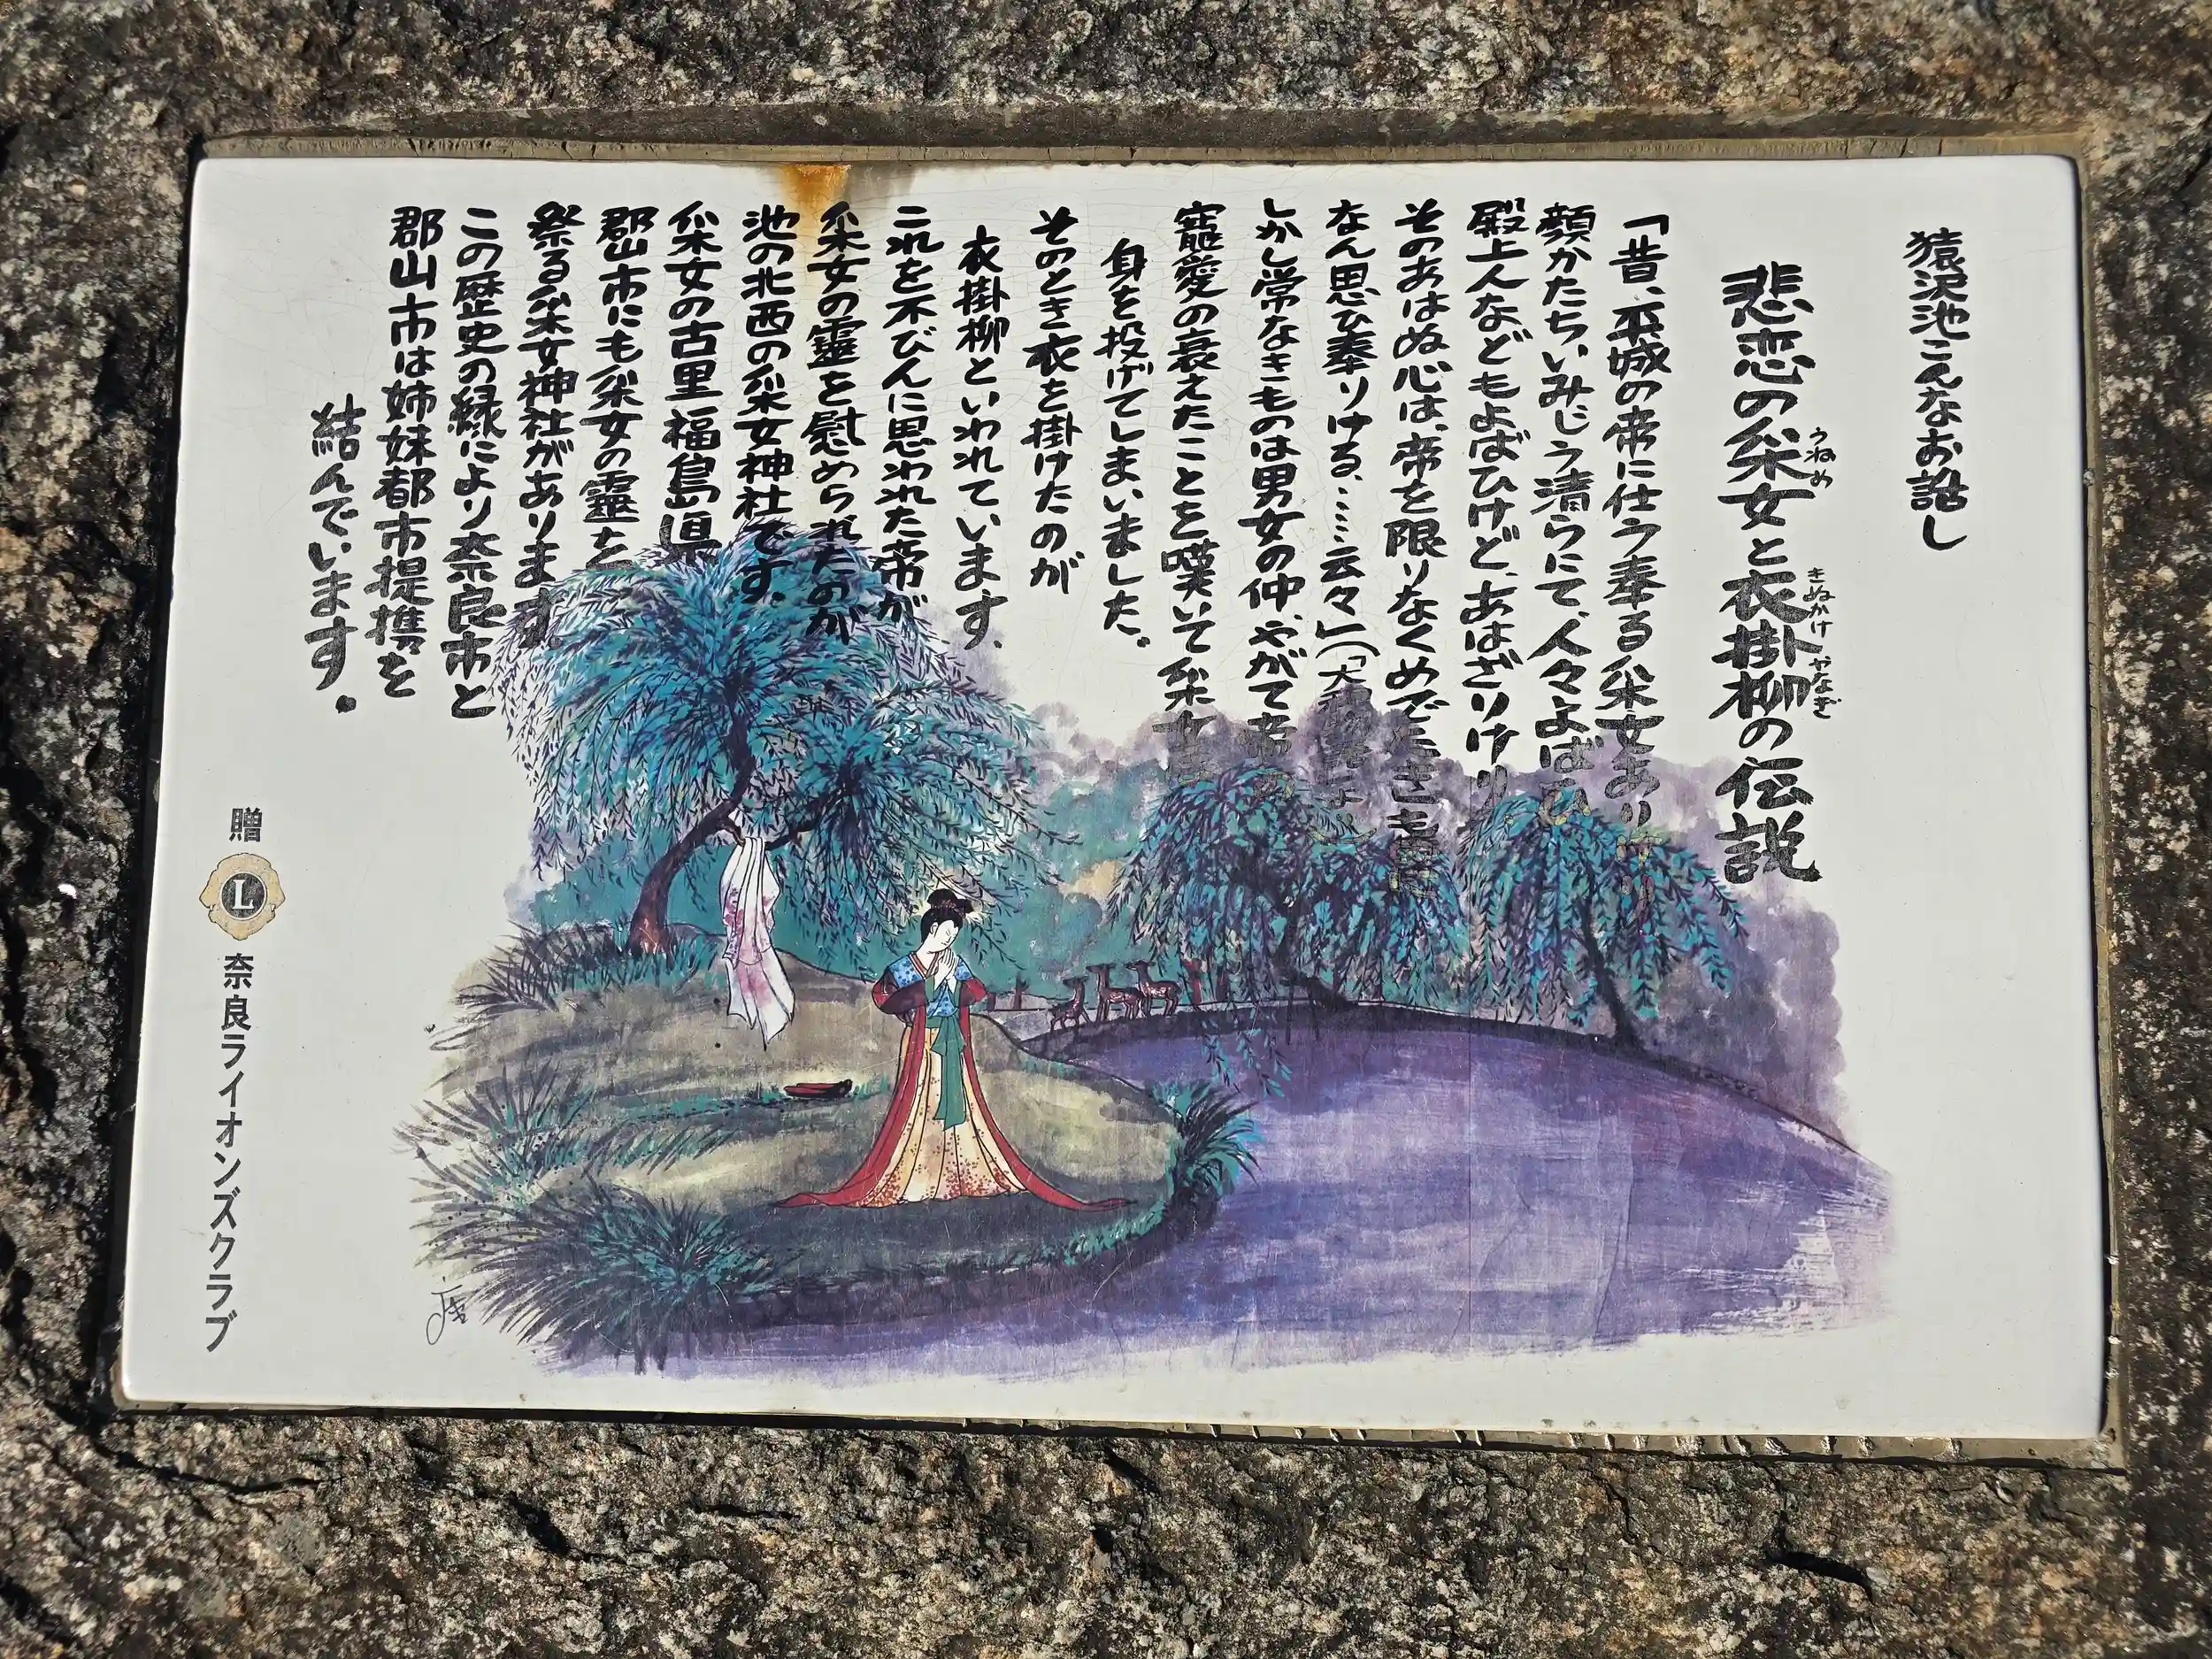 猿沢池こんなお話し
悲恋の采女と衣掛柳の伝説
うねめ
きぬかけやなぎ
「昔、平城の帝に仕う奉る采女あり
顔かたちいみじう清らにて、人々よばひ
殿上人などもよばひけど、あはざりけり
そのあはぬ心は、帝を限りなくめでたきも
なん思ひ奉りける、……云々」(「大
しかし常なきものは男女の仲、やがて帝
寵愛の衰えたことを嘆いて采女は
身を投げてしまいました。
そのとき衣を掛けたのが
衣掛柳といわれています。
これを不びんに思われた帝が
采女の霊を慰められたのが
池の北西の采女神社です。
采女の古里福島県
郡山市にも采女の霊を
祭る采女神社があります
この歴史の縁により奈良市と
郡山市は姉妹都市提携を
結んでいます。
贈
L
奈良ライオンズクラブ